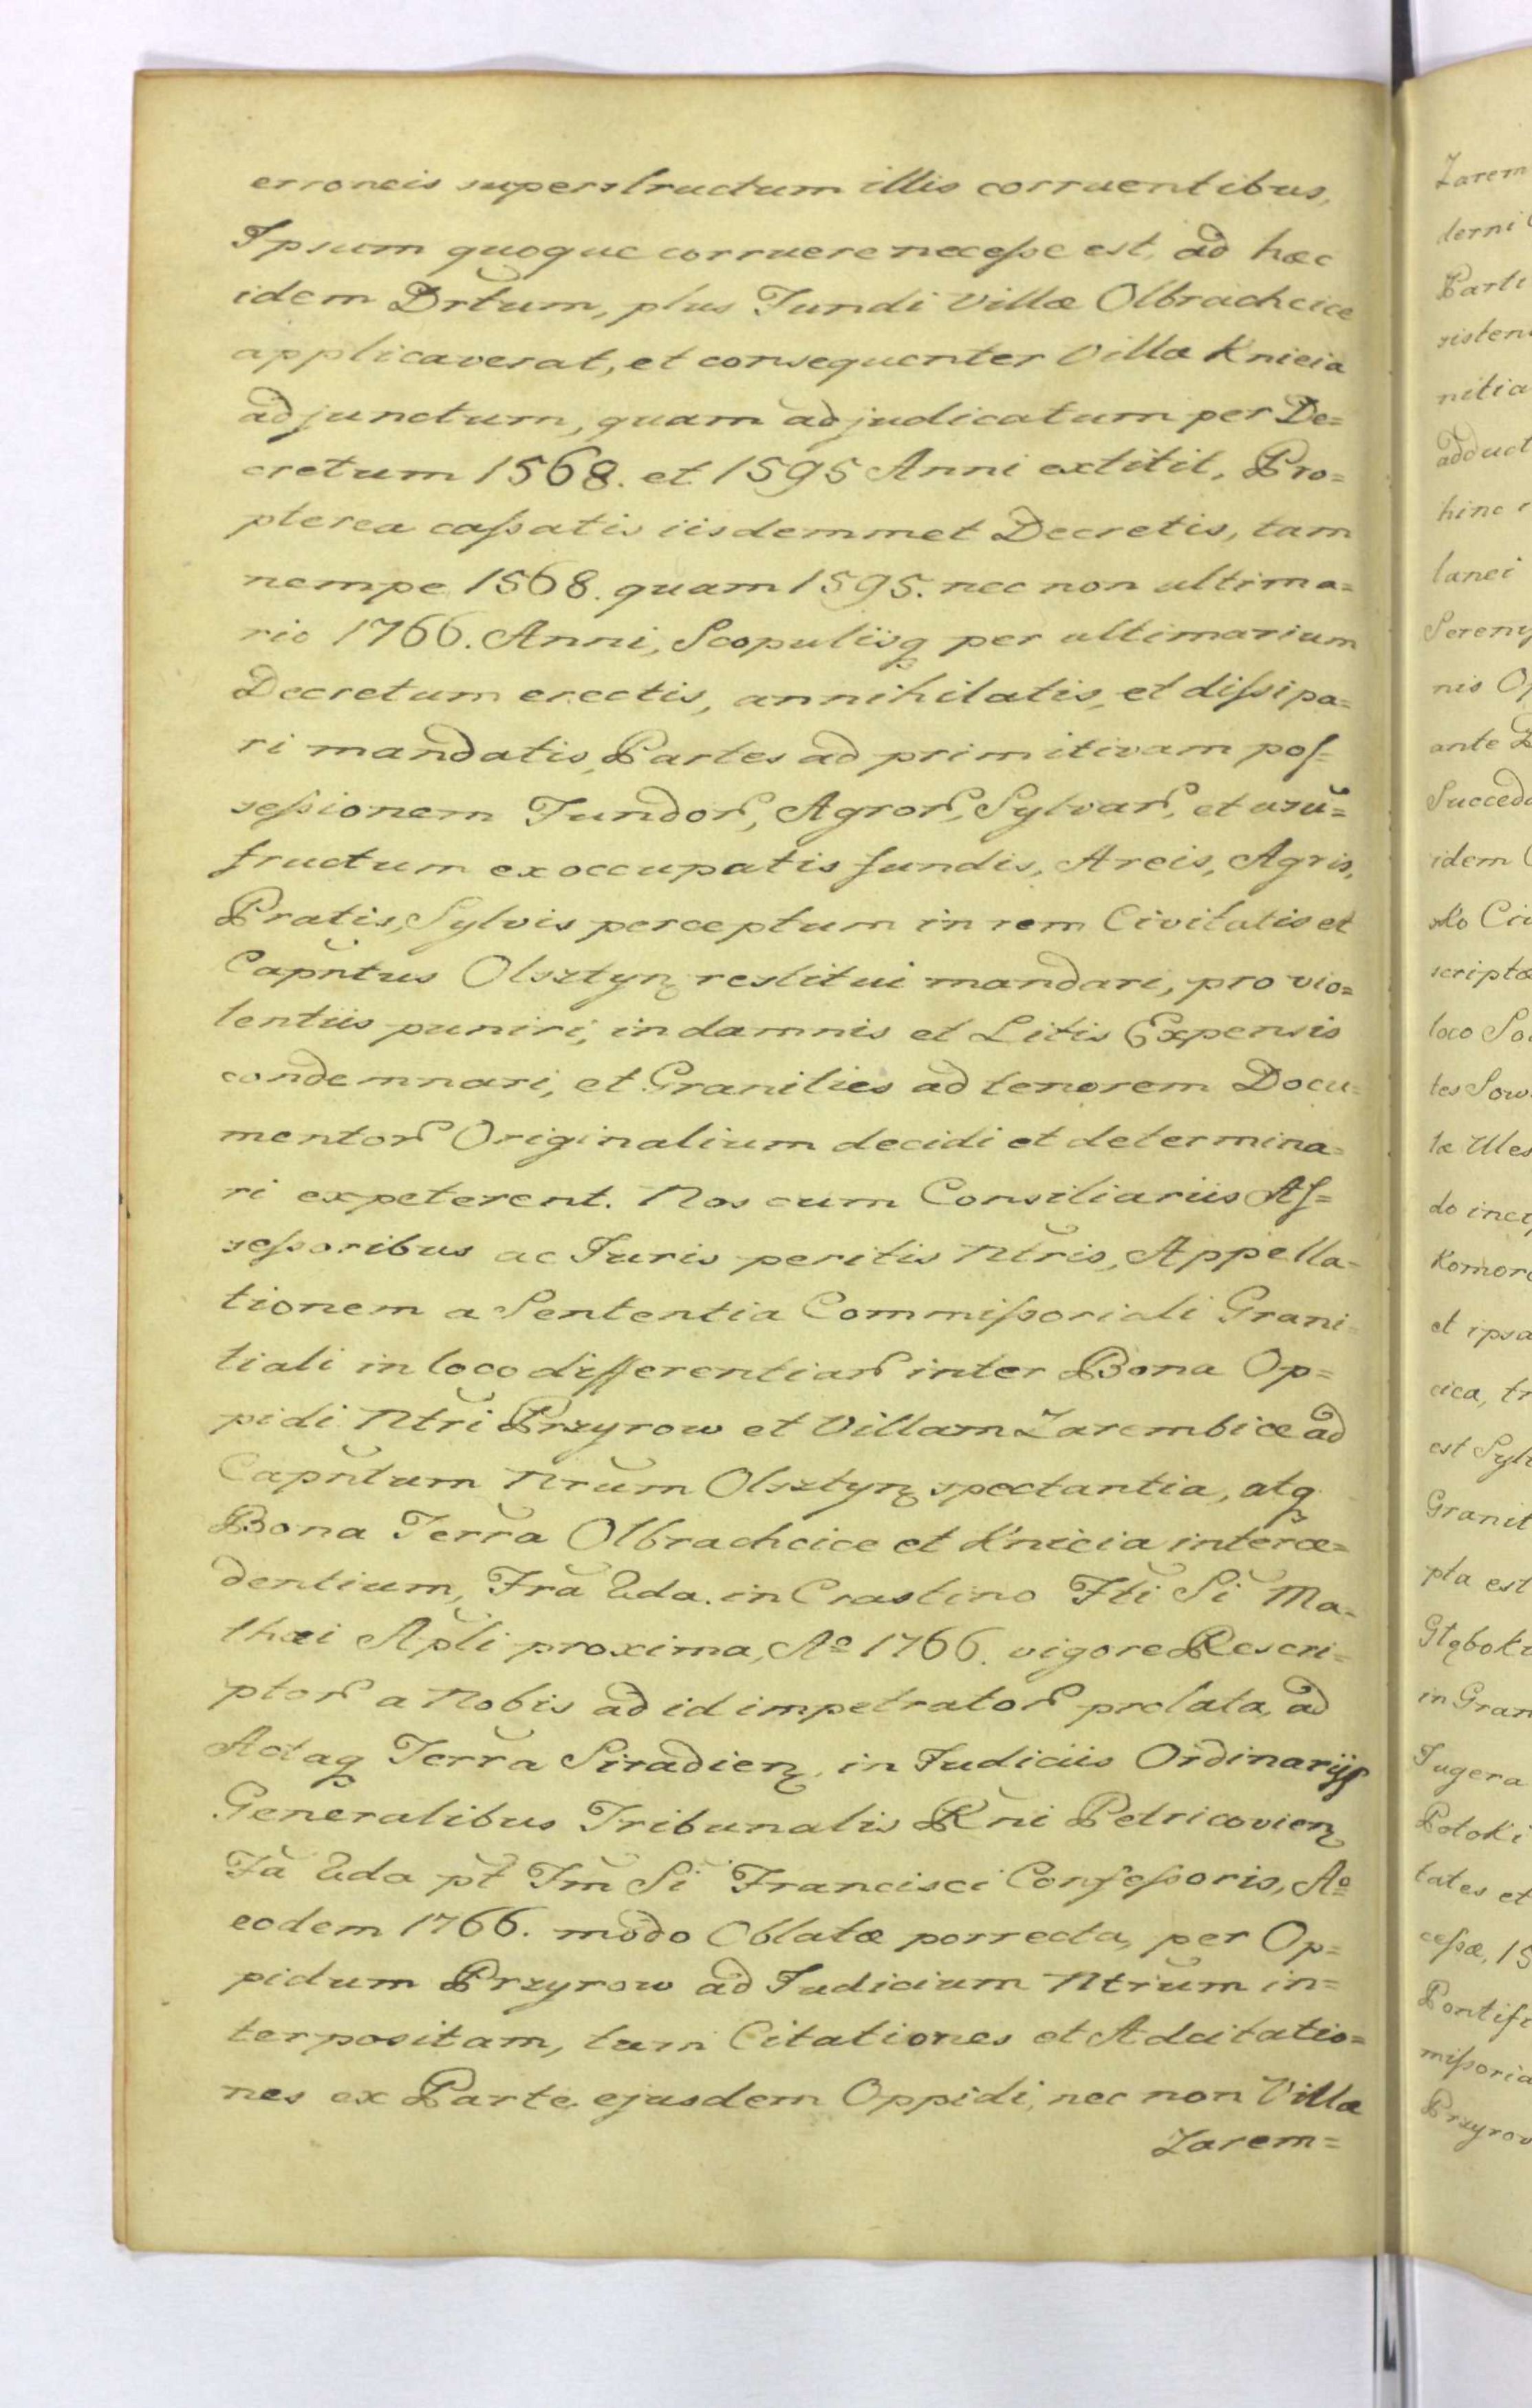 erroneis superstructum illis corruentibus,
Ipsum quoque corruere necesse est, ad hæc
idem Drtum, plus Fundi Villæ Olbrachcice
applicaverat, et consequenter Villæ Knieia
adjunctum, quam adjudicatum per De=
cretum 1568. et 1595 Anni extitit, Pro=
pterea cassatis iisdemmet Decretis, tam
nempe 1568. quam 1595. nec non ultima=
rio 1766. Anni, Scopulisq per ultimarium
Decretum erectis, annihilatis, et dissipa=
ri mandatis, Partes ad primitivam pos=
sessionem Fundor, Agror, Sylvar, et usu=
fructum ex occupatis fundis, Areis, Agris,
Pratis, Sylvis perceptum in rem Civitatis et
Capntus Olsztyn restitui mandari, pro vio=
lentiis puniri, in damnis et Litis Expensis
condemnari, et Granities ad tenorem Docu=
mentor Originalium decidi et determina=
ri expeterent. Nos cum Consiliariis As=
sessoribus ac Juris peritis Ntris, Appella=
tionem a Sententia Commissoriali Grani=
tiali in loco differentiar inter Bona Op=
pidi Ntri Przyrow et Villam Zarembice ad
Capntum Nrum Olsztyn spectantia, atq
Bona Terra Olbrachcice et Knieia interce=
dentium, Fra 2da. in Crastino Fti Si Ma=
thæi Apli proxima, Ao 1766. vigore Rescri=
ptor a Nobis ad id impetrator prolata, ad
Actaq Terra Siradien, in Judiciis Ordinarijs
Generalibus Tribunalis Rni Petricovien
Fa 2da pt Fm Si Francisci Confessoris, Ao
eodem 1766. modo Oblatæ porrecta, per Op=
pidum Przyrow ad Judicium Ntrum in=
terpositam, tum Citationes et Adcitatio=
nes ex Parte ejusdem Oppidi, nec non Villæ
Zarem=
Zarem
derni
Parti
sisten
nitia
adduct
hinc
lanei
nis
ante
Succed
idem
scripta
loco
do
Komor
et ipsa
cica, tr
est Syl
Granit
pta est
Głębok
in Gran
Jugera
Potoki
tates et
cessæ, 15
Pontif
missoria
Przyrow